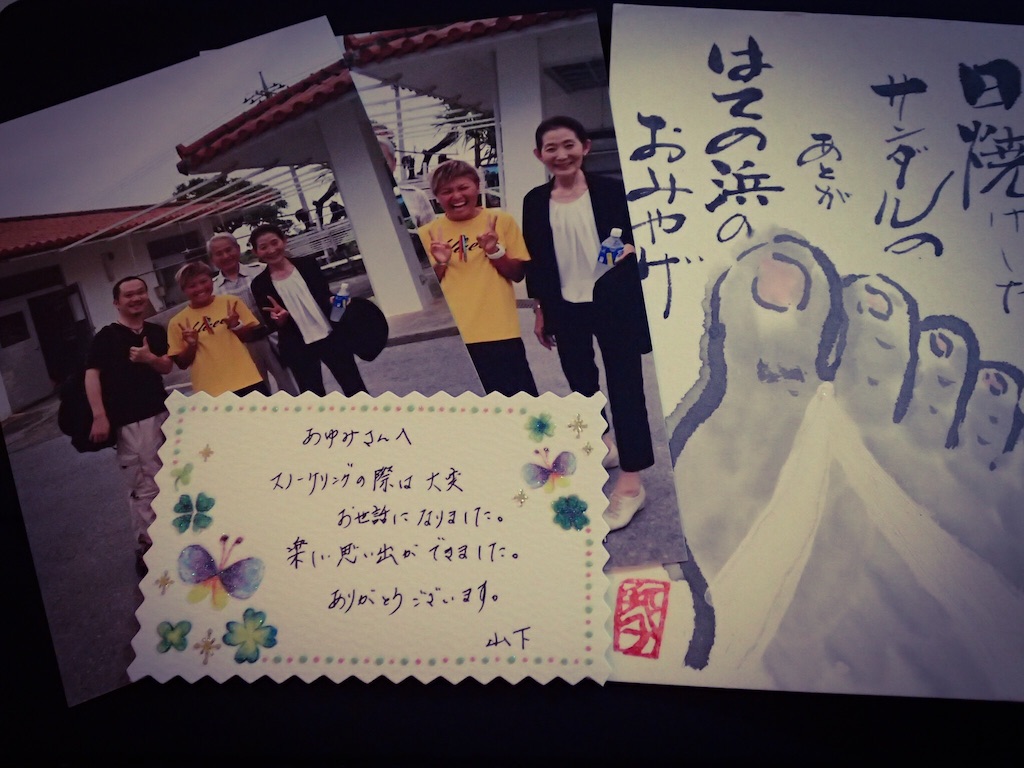 日焼けした
サンダルの
あとが
はての浜の
おみやげ
あゆみさんへ
スノーケリングの際は大変
お世話になりました。
楽しい思い出ができました。
ありがとうございます。
山下